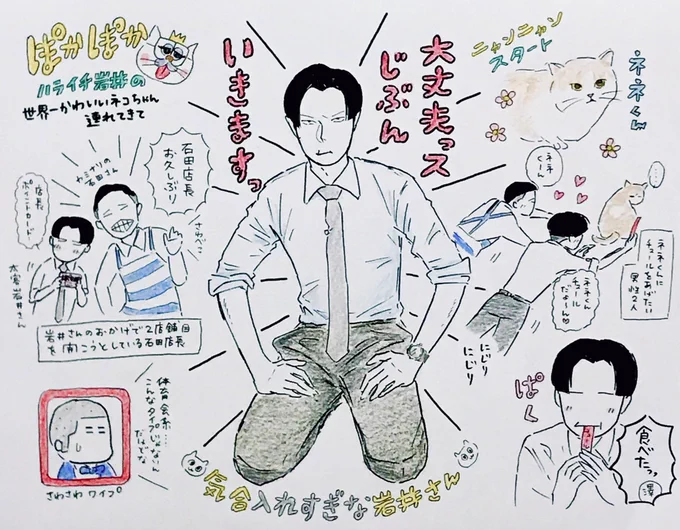 ぽかぽか
ハライチ岩井の
世界一かわいいネコちゃん
連れてきて
大丈夫っス
じぶん
いきますっ
ニャンニャン
スタート
ネネくん
石田店長
お久しぶり
カミナリの
石田さん
さわべこ
店長
ポイントカード
太客岩井さん
岩井さんのおかげで2店舗目
を開こうとしている石田店長
ネネくーん
ネネくんに
チュールをあげたい
男性2人
ネネくん
チュール
だよーん
にじり
にじり
体育会系…
こんなタイプじゃないん
だけどな
さわさわ ワイプ
ぱく
食べたっ
澤
気合入れすぎな岩井さん